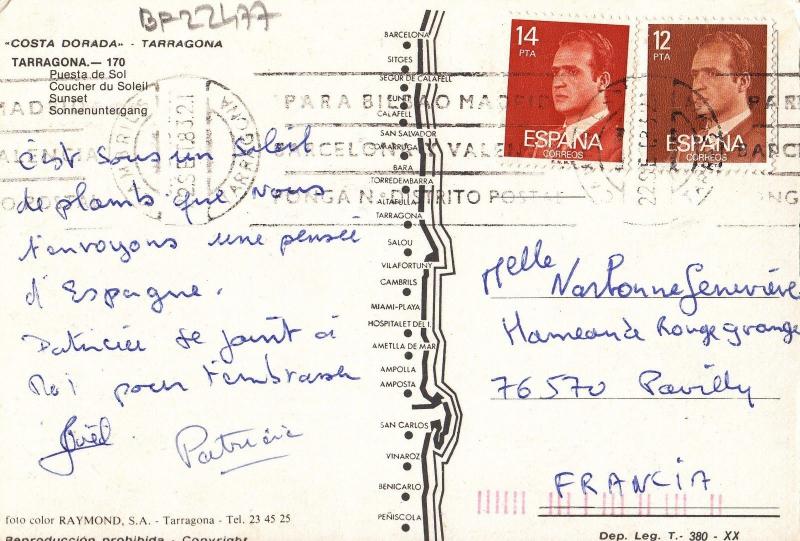 BP22477
"COSTA DORADA" - TARRAGONA
TARRAGONA.— 170
Puesta de Sol
Coucher du Soleil
Sunset
Sonnenuntergang
C'est sous un soleil
de plomb que nous
t'envoyons une pensée
d'Espagne.
Patricia se joint à
Moi pour t'embrasser
Joël
Patricia
foto color RAYMOND, S.A. - Tarragona - Tel. 23 45 25
Reproducción prohibida - Copyright
BARCELONA
SITGES
SEGUR DE CALAFELL
CUNIT
CALAFELL
SAN SALVADOR
COMARRUGA
BARA
TORREDEMBARRA
ALTAFULLA
TARRAGONA
SALOU
VILAFORTUNY
CAMBRILS
MIAMI-PLAYA
HOSPITALET DEL I.
AMETLLA DE MAR
AMPOLLA
AMPOSTA
SAN CARLOS
VINAROZ
BENICARLO
PEÑISCOLA
14
PTA
ESPAÑA
CORREOS
12
PTA
ESPAÑA
CORREOS
PARA BILBAO MADRID
BARCELONA Y VALENCIA
PONGA Nº DISTRITO POSTAL
TARRAGONA
Melle Narbonne Geneviève
Hameau de Rouge grange
76570 Pavilly
FRANCIA
Dep. Leg. T.- 380 - XX